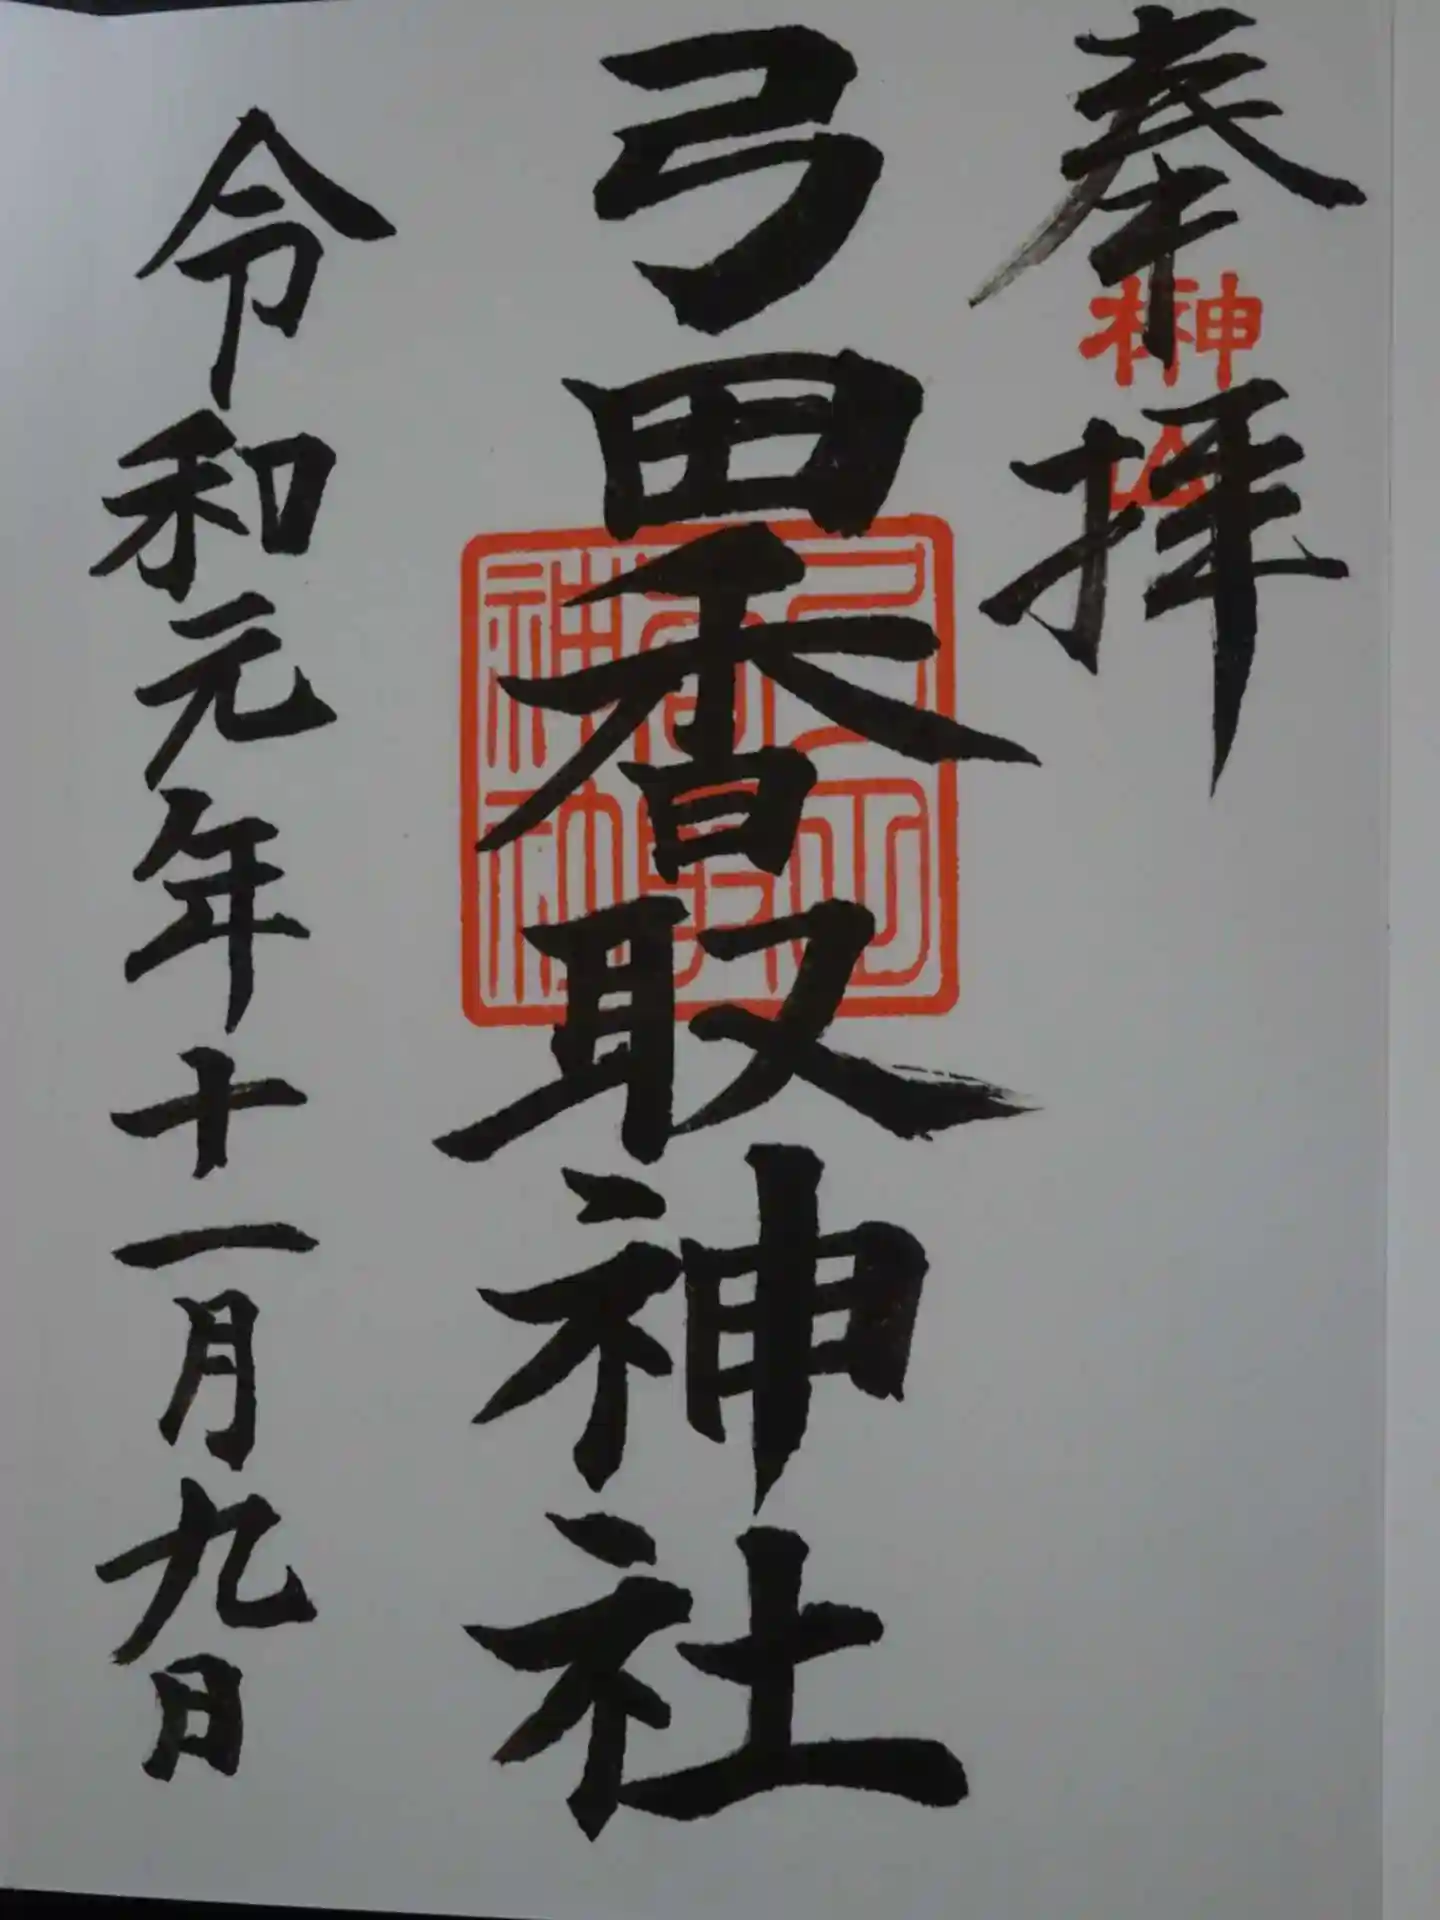 奉拝
弓田香取神社
令和元年十一月九日